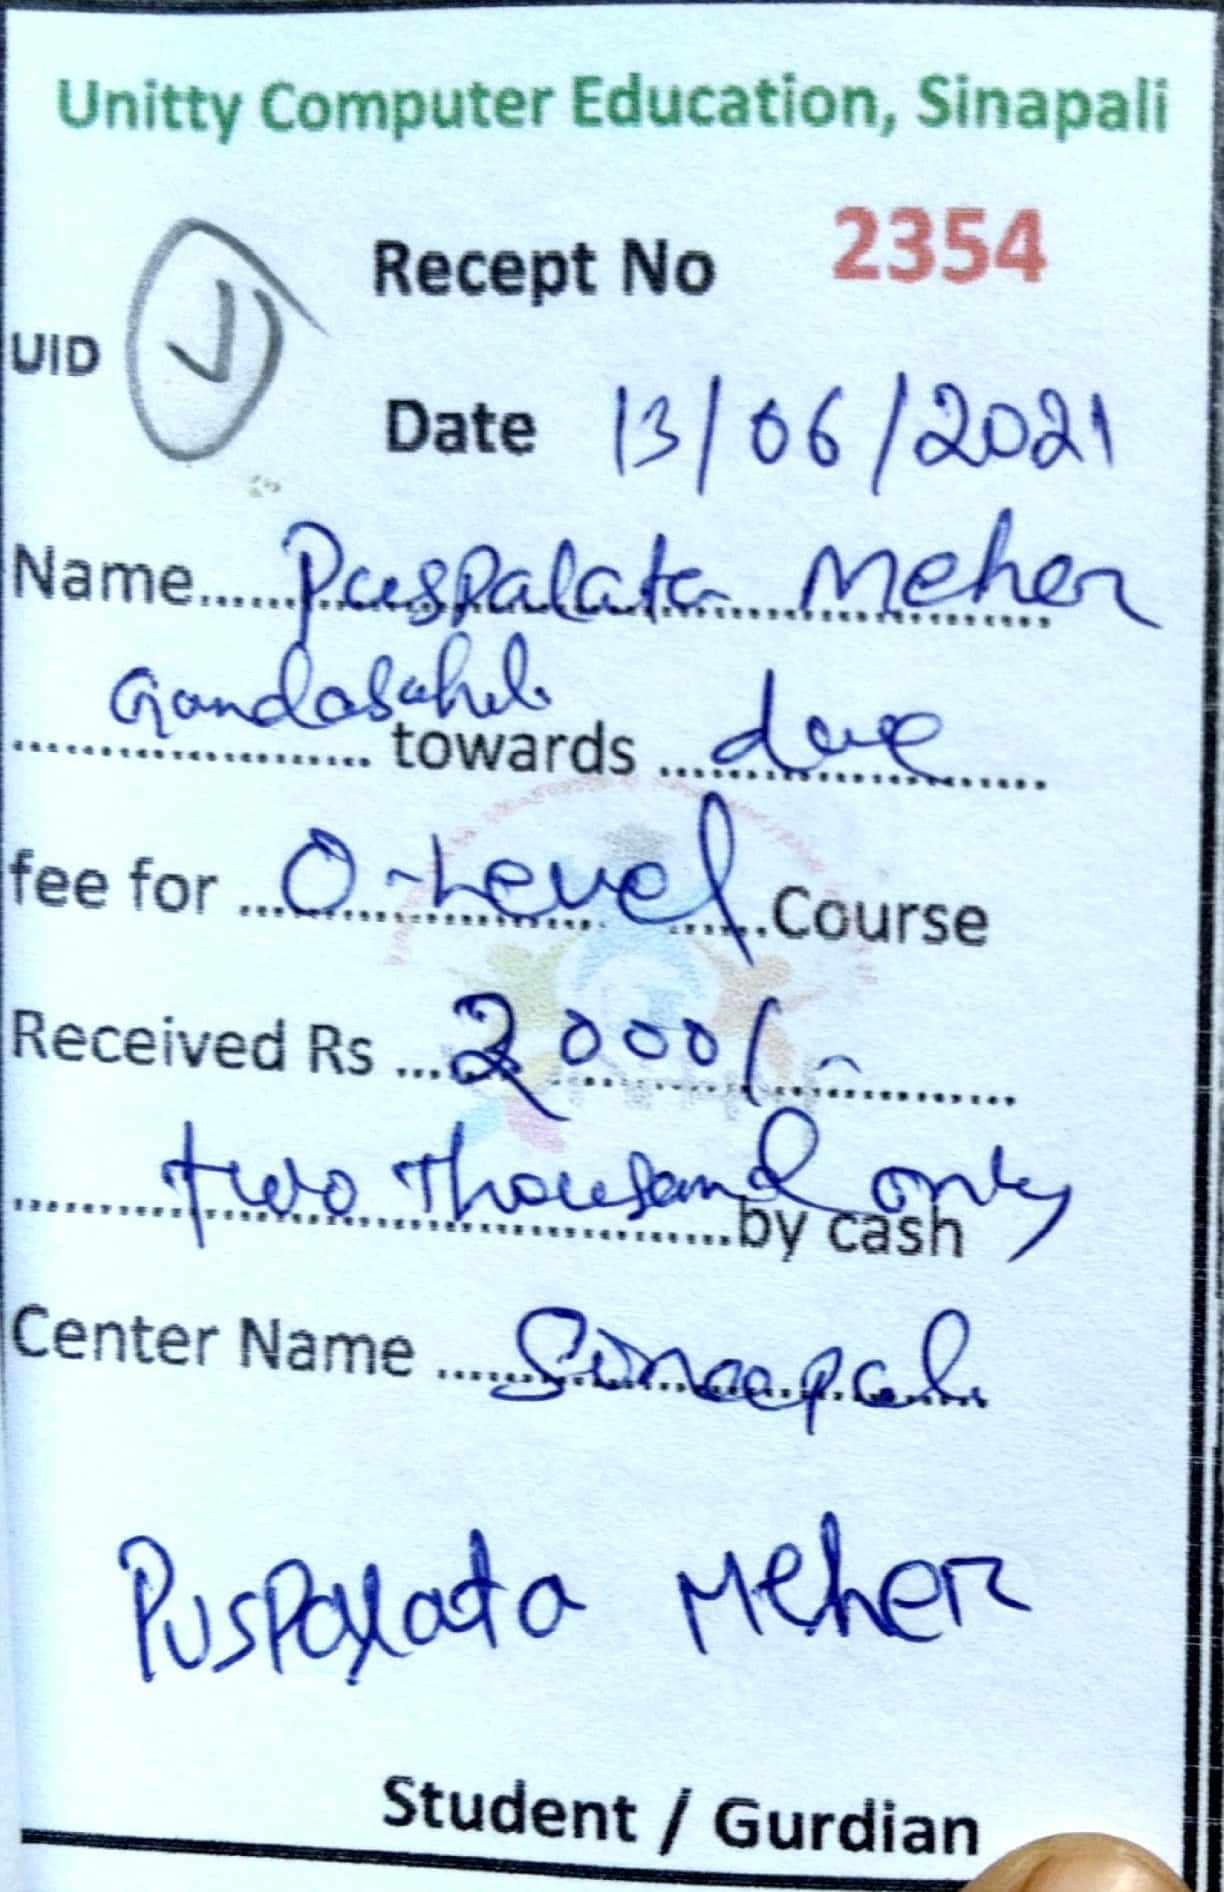 Unitty Computer Education, Sinapali
Recept No 2354
UID
Date 13/06/2021
Name.....Puspalata Meher
Gandasahili
towards due
fee for O-Level Course
Received Rs 2000/-
two thousand only
by cash
Center Name Sinapali
Puspalata Meher
Student / Gurdian